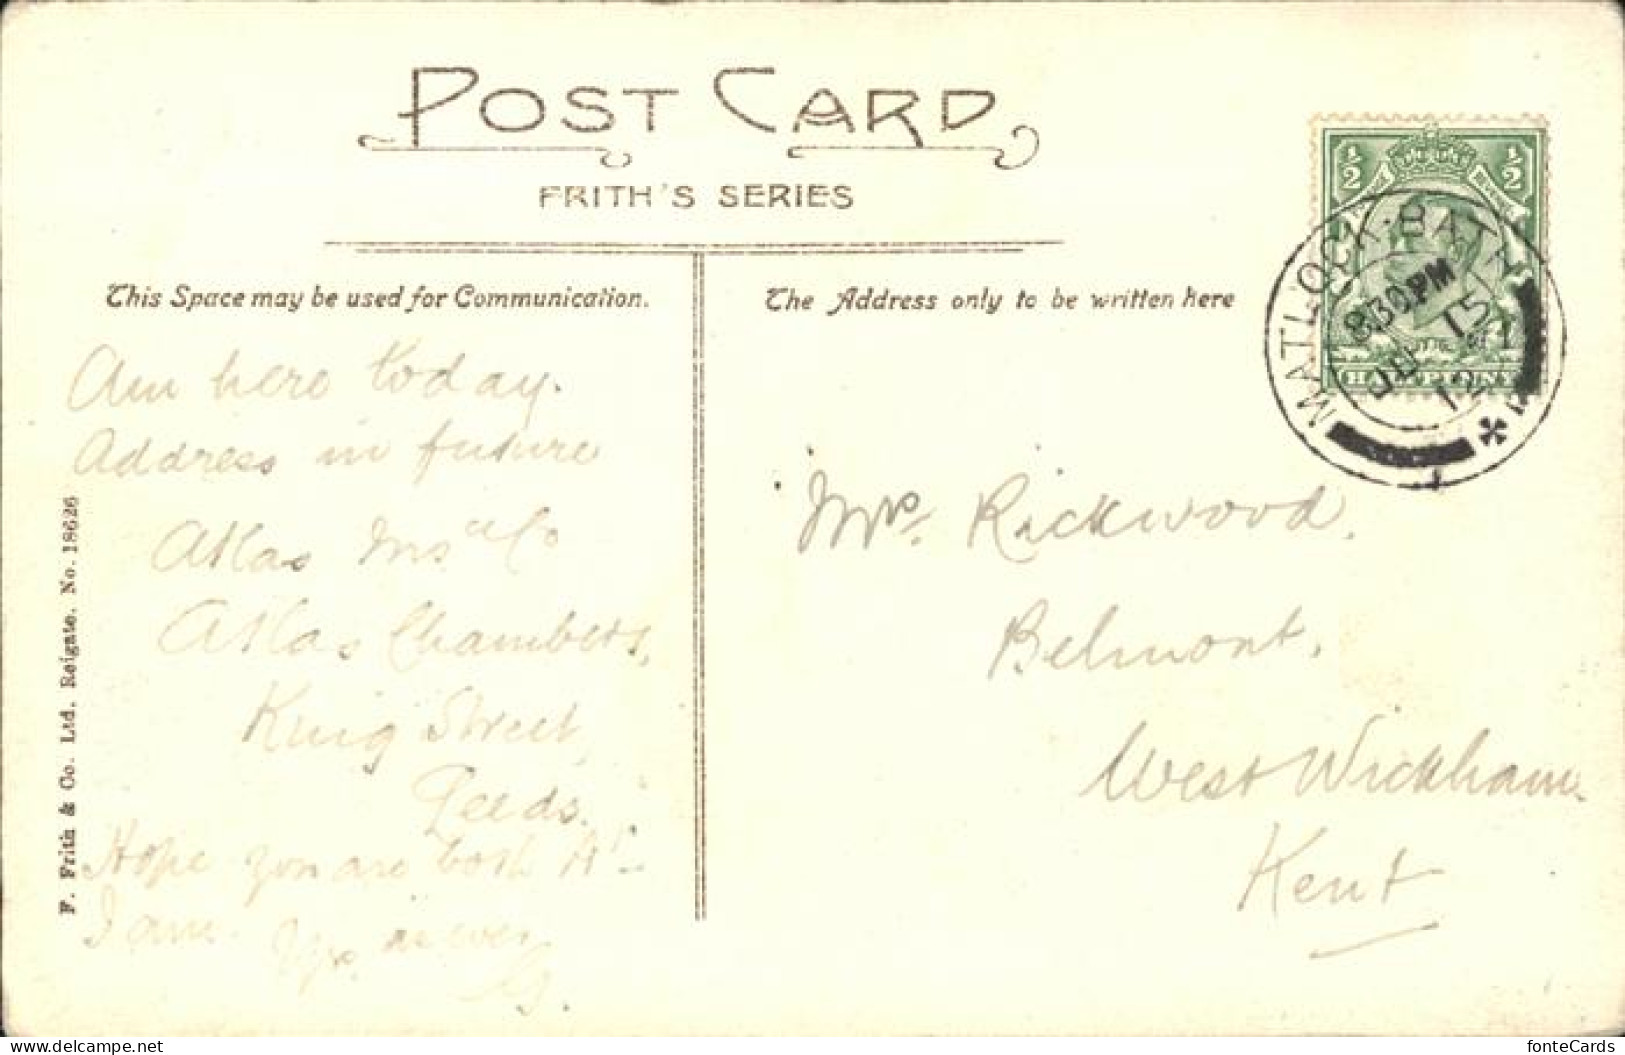 POST CARD
FRITH'S SERIES
This Space may be used for Communication.
The Address only to be written here
Am here today.
Address in future
Atlas Insce Co
Atlas Chambers,
King Street,
Leeds.
Hope you are both A1
I am. Yrs. as ever
G.
F. Frith & Co. Ltd. Reigate. No. 18626
½ ½
HALFPENNY
MATLOCK·BATH
830PM
JU 15
12
Mrs. Rickwood.
Belmont.
West Wickham.
Kent
fonteCards